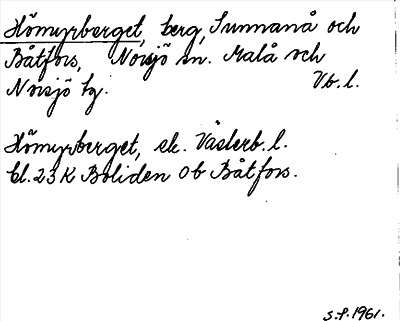 Hömyrberget, berg, Sunnanå och
Båtfors, Norsjö sn. Malå och
Norsjö tg. Vb.l.
Hömyrberget, ek. Västerb. l.
bl. 23 K Boliden Ob Båtfors.
S.P. 1961.